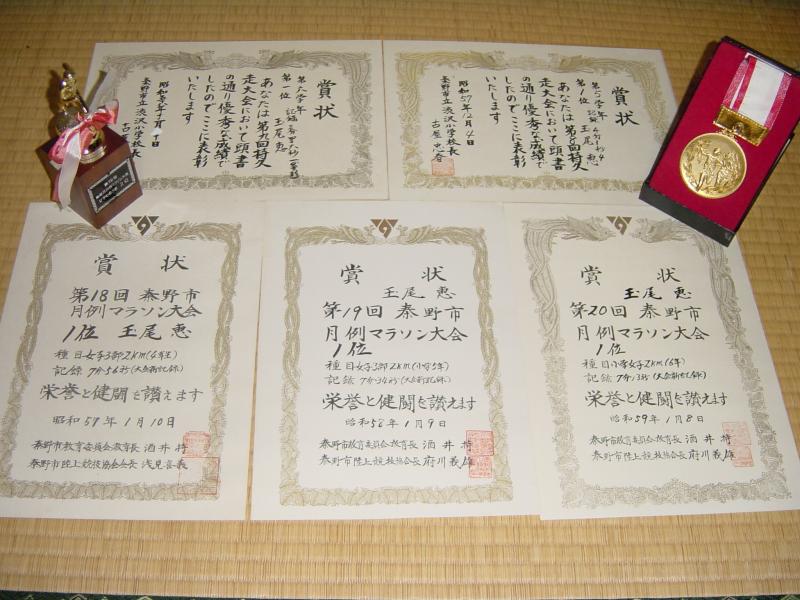 賞状
第六学年
第一位 玉尾 恵
あなたは第九回持久
走大会において頭書
の通り優秀な成績で
したのでここに表彰
いたします
秦野市立渋沢小学校長
賞状
第5学年
第1位 玉尾 恵
あなたは
走大会において頭書
の通り優秀な成績で
したのでここに表彰
いたします
昭和57年12月4日
秦野市立渋沢小学校長
古屋忠春
賞状
第18回 秦野市
月例マラソン大会
1位 玉尾 恵
種目女子3部2km
記録 7分56秒(大会新記録)
栄誉と健闘を讃えます
昭和57年1月10日
秦野市教育委員会教育長 酒井 将
秦野市陸上競技協会会長 浅見喜義
賞状
玉尾 恵
第19回 秦野市
月例マラソン大会
1位
種目女子3部2km(小学5年)
記録 7分34秒(大会新記録)
栄誉と健闘を讃えます
昭和58年1月9日
秦野市教育委員会教育長 酒井 将
秦野市陸上競技協会長 府川義雄
賞状
玉尾 恵
第20回 秦野市
月例マラソン大会
1位
種目小学女子2km(6年)
記録 7分13秒(大会新記録)
栄誉と健闘を讃えます
昭和59年1月8日
秦野市教育委員会教育長 酒井 将
秦野市陸上競技協会長 府川義雄